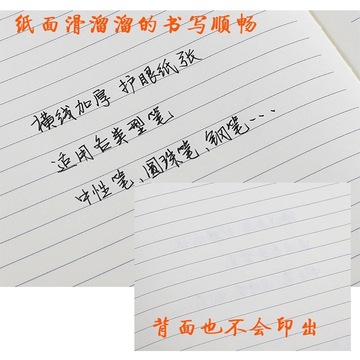 纸面滑溜溜的书写顺畅
横线加厚 护眼纸张
适用各类型笔
中性笔、圆珠笔、钢笔···
背面也不会印出